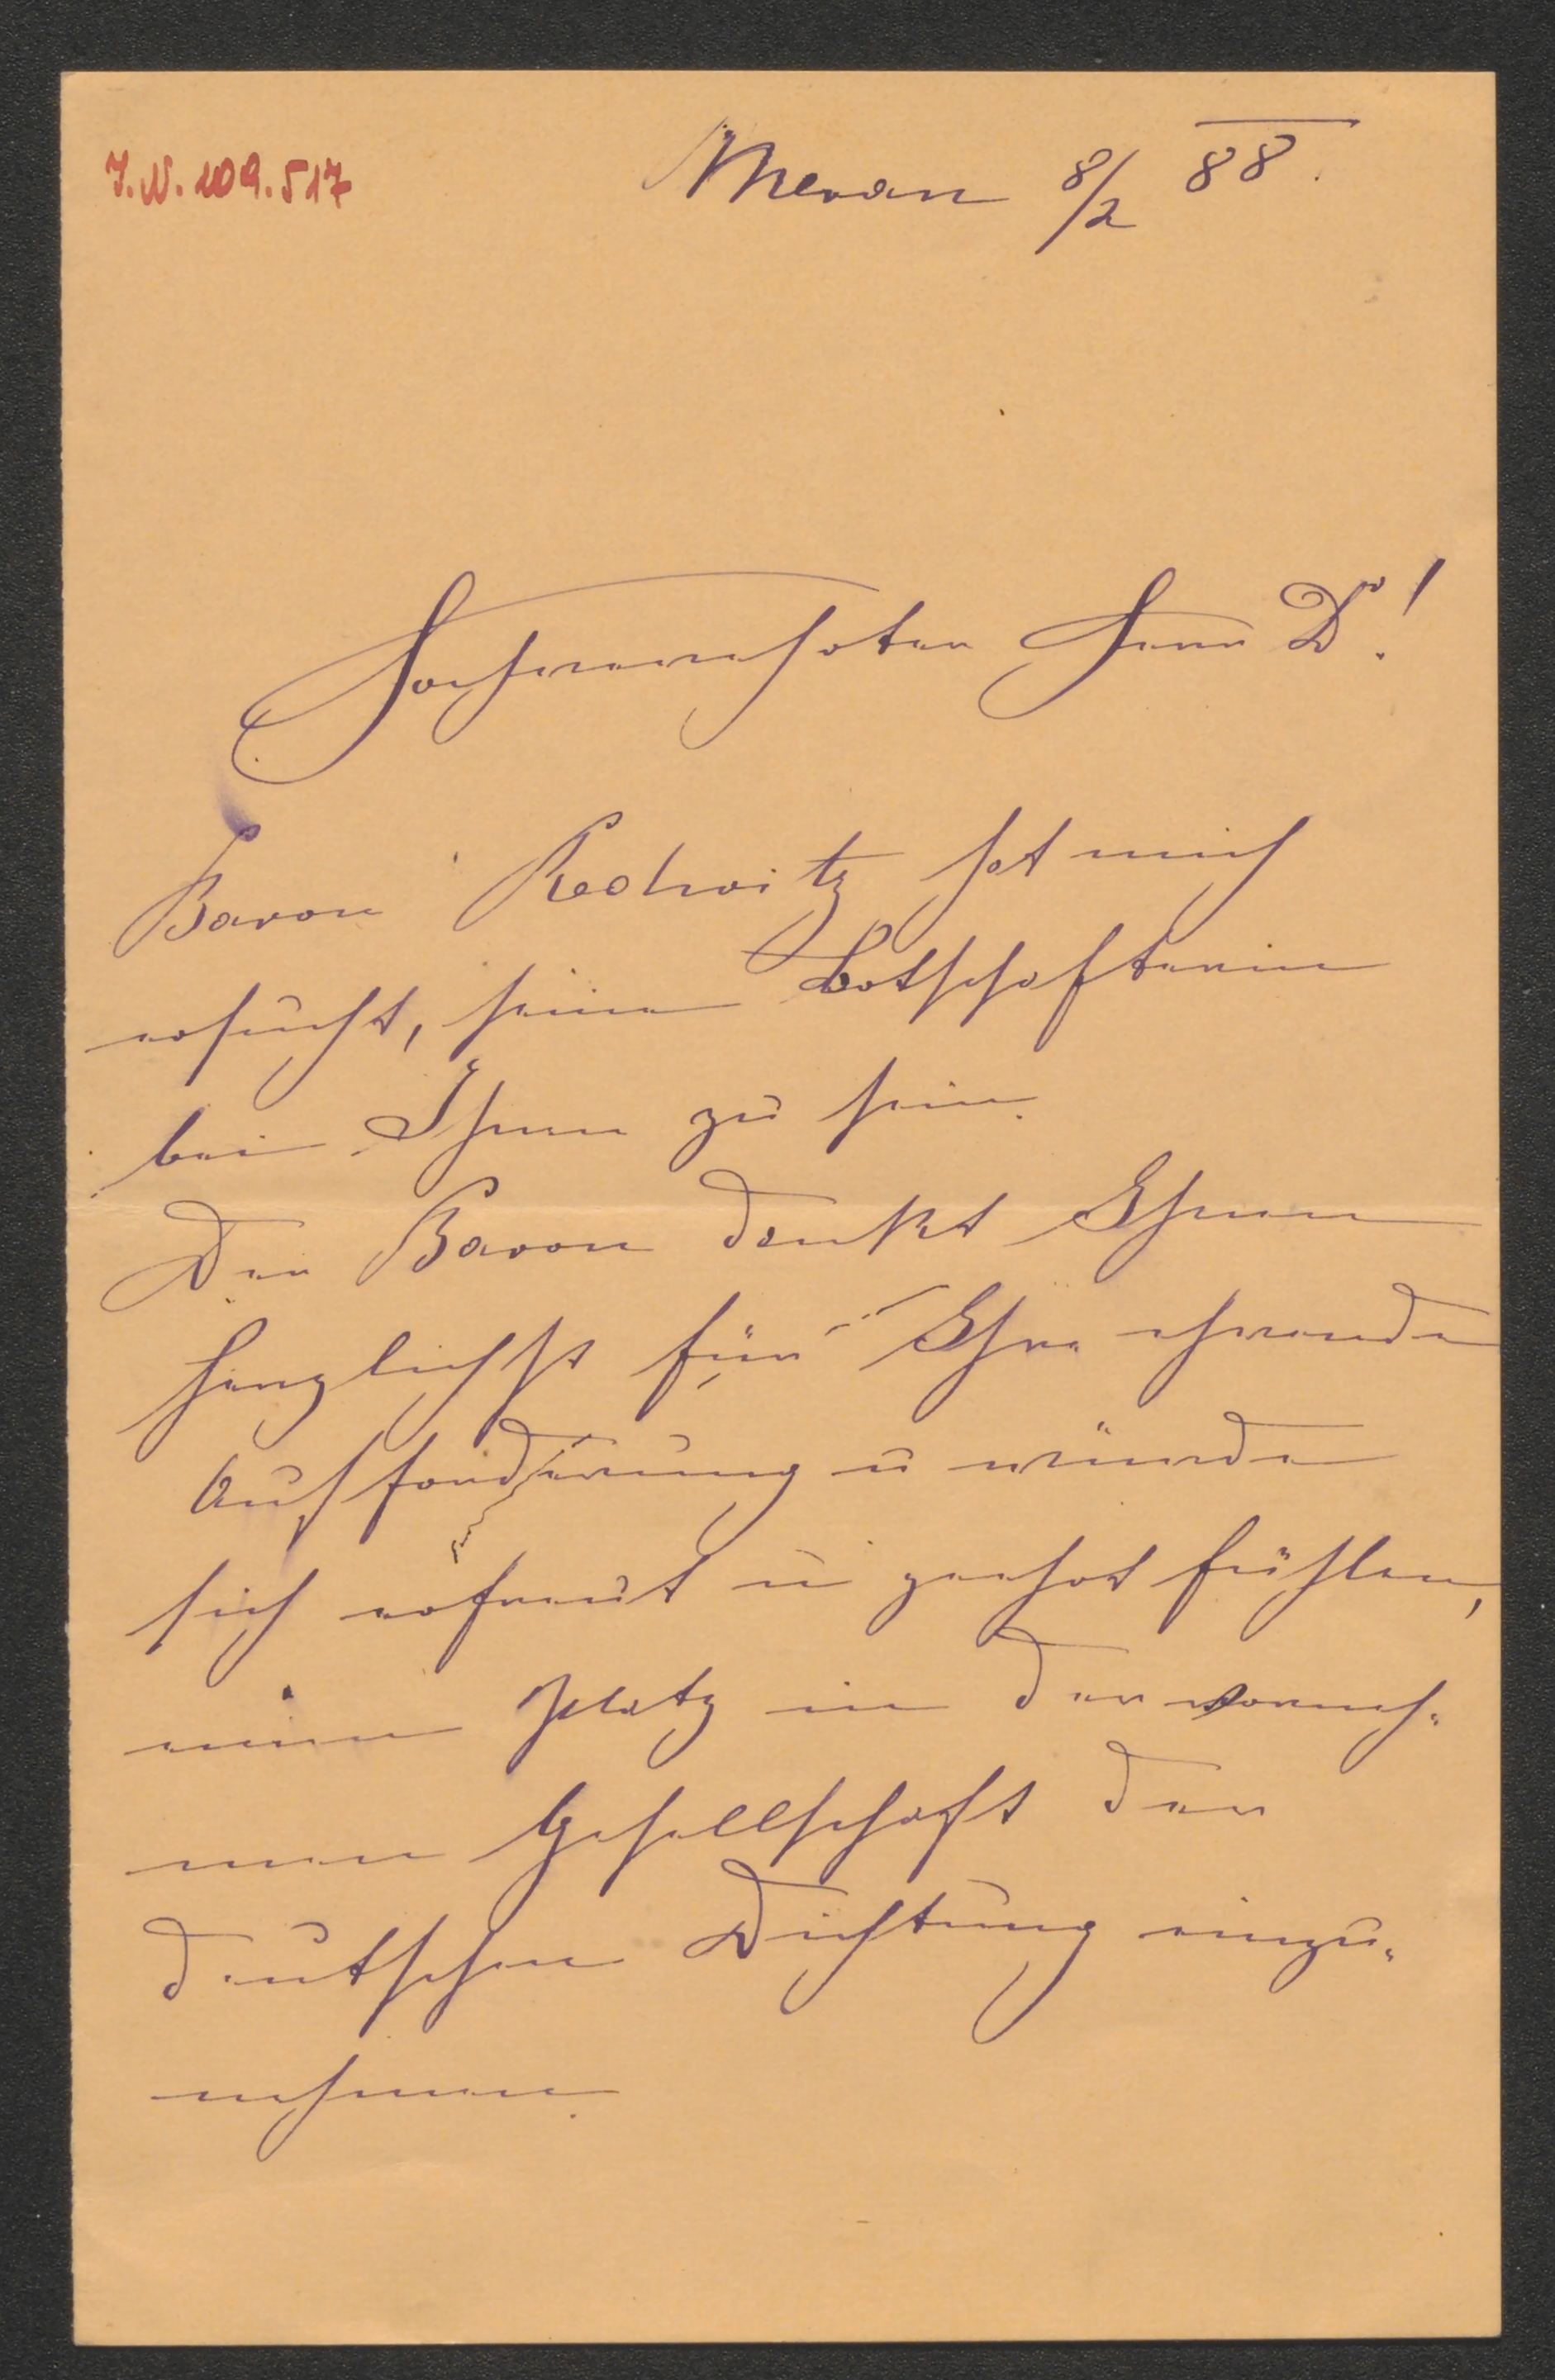 J.N. 109.517
Meran 8/2 88.
Hochverehrter Herr Dr!
Baron Redwitz hat mich
ersucht, seine Botschafterin
bei Ihnen zu sein.
Der Baron dankt Ihnen
herzlichst für Ihre ehrende
Aufforderung u würde
sich erfreut u geehrt fühlen,
einen Platz in der vorneh-
men Gesellschaft der
deutschen Dichtung einzu-
nehmen.